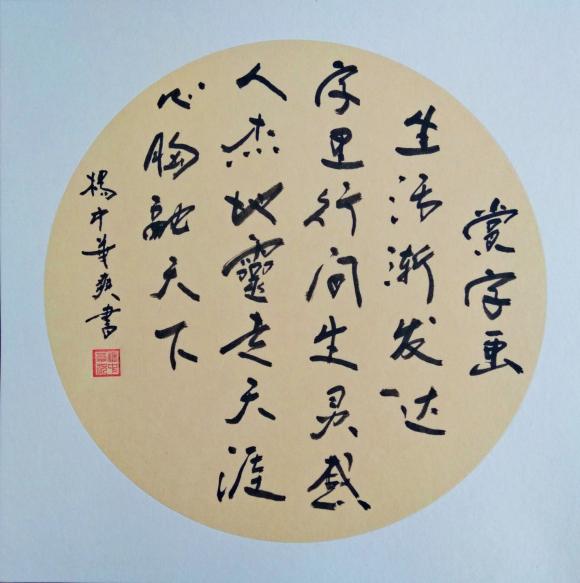 赏字画
生活渐发达
字里行间生灵感
人杰地靈走天涯
心胸融天下
楊中華爽書